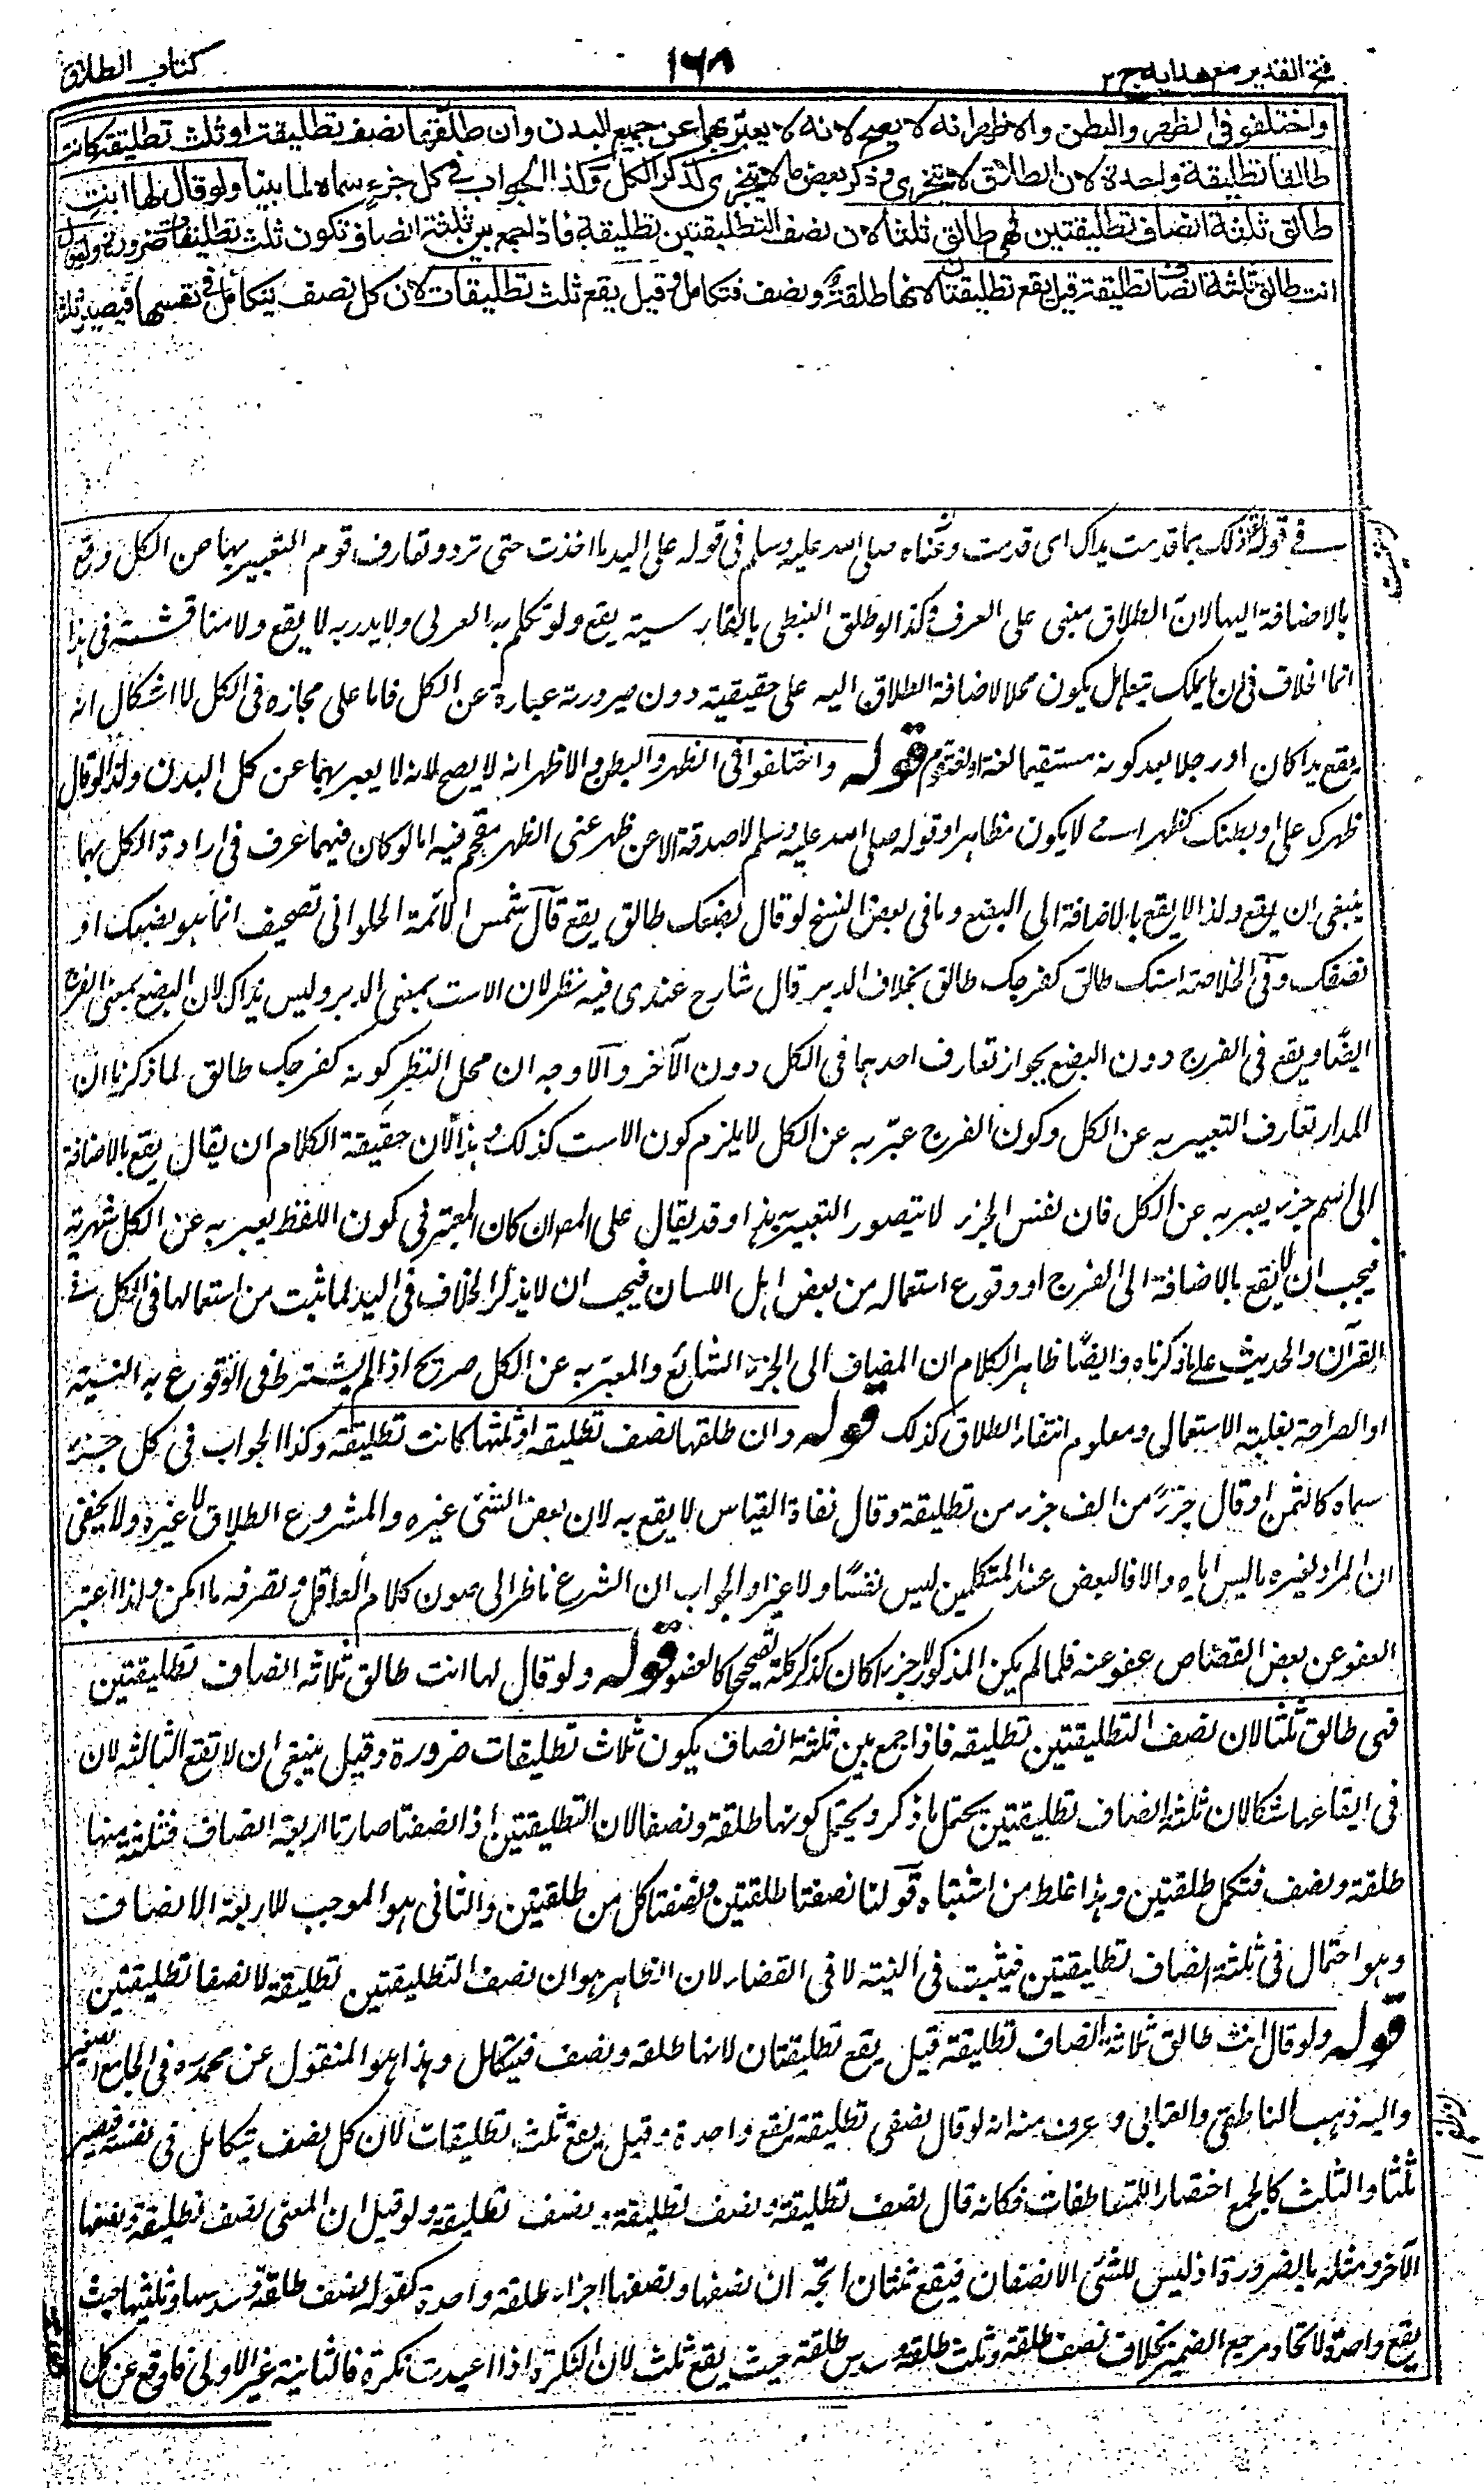 فتح القدير مع هدايه ج ٢
١٦٨
كتاب الطلاق
واختلفوا فى الظهر والبطن والاظهر انه لا يصح لانه لا يعبر بهما عن جميع البدن وان طلقها نصف تطليقة او ثلث تطليقة كانت
طالقا تطليقة واحدة لان الطلاق لا يتجزى وذكر بعض ما لا يتجزى كذكر الكل وكذا الجواب فى كل جزء سماه لما بينا ولو قال لها انت
طالق ثلثة انصاف تطليقتين فهى طالق ثلثا لان نصف التطليقتين تطليقة فاذا جمع بين ثلثة انصاف تكون ثلث تطليقات ضرورة ولو قال
انت طالق ثلثة انصاف تطليقة قيل يقع تطليقتان لانها طلقة ونصف فتكامل وقيل يقع ثلث تطليقات لان كل نصف يتكامل فى نفسها فيصير ثلثا
فى قوله تعالى ذلك بما قدمت يداك اى قدمت وعناه صلى الله عليه وسلم فى قوله على اليد ما اخذت حتى ترد وتعارف قوم التعبير بها عن الكل وقع
بالاضافة اليها لان الطلاق مبنى على العرف وكذا لو طلق النبطى بالفارسية يقع ولو تكلم به العربى ولا يدريه لا يقع ولا مناقشة فى هذا
انما الخلاف فى ان ما يملك تبعا هل يكون محلا لاضافة الطلاق اليه على حقيقية دون صيرورته عبارة عن الكل فاما على مجازه فى الكل لا اشكال انه
يقع يدا كان او رجلا بعد كونه مستقيما لغة او لغة قوم قوله واختلفوا فى الظهر والبطن والاظهر انه لا يصح لانه لا يعبر بهما عن كل البدن ولذا لو قال
ظهرك على او بطنك كظهر امى لا يكون مظاهرا وقوله صلى الله عليه وسلم لا صدقة الا عن ظهر غنى الظهر مقحم فيه اما لو كان فيهما عرف فى ارادة الكل بهما
ينبغى ان يقع ولذا لا يقع بالاضافة الى البضع وما فى بعض النسخ لو قال بضعك طالق يقع قال شمس الائمة الحلوانى تصحيف انما هو بعضك او
نصفك وفى الخلاصة استك طالق كفرجك طالق بخلاف الدبر قال شارح عندى فيه نظر لان الاست بمعنى الدبر وليس بذاك لان البضع بمعنى الفرج
ايضا ويقع فى الفرج دون البضع بجواز تعارف احدهما فى الكل دون الآخر والاوجه ان محل النظر كونه كفرجك طالق لما ذكرنا ان
المدار تعارف التعبير به عن الكل وكون الفرج عبر به عن الكل لا يلزم كون الاست كذلك وهذا لان حقيقة الكلام ان يقال يقع بالاضافة
الى اسم جزء يعبر به عن الكل فان نفس الجزء لا يتصور التعبير به هذا وقد يقال على المصر ان كان المعتبر فى كون اللفظ يعبر به عن الكل شهرته
فيجب ان لا يقع بالاضافة الى الفرج او وقوع استعماله من بعض اهل اللسان فيجب ان لا يذكر الخلاف فى اليد لما ثبت من استعمالها فى الكل فى
القرآن والحديث على ما ذكرناه وايضا ظاهر الكلام ان المضاف الى الجزء الشائع والمعبر به عن الكل صريح اذا لم يشترط فى الوقوع به النسبة
او الصراحة بغلبة الاستعمالى ومعلوم انتفاء الطلاق كذلك قوله وان طلقها نصف تطليقة او ثلثها كانت تطليقة وكذا الجواب فى كل جزء
سماه كالثمن او قال جزءً من الف جزء من تطليقة وقال نفاة القياس لا يقع به لان بعض الشئ غيره والمشروع الطلاق لا غيره ولا يخفى
ان المراد بغيره ما ليس اياه والا فالبعض عند المتكلمين ليس نفسًا ولا غيرا والجواب ان الشرع ناظر الى صون كلام العاقل وتصرفه ما امكن ولذا اعتبر
العفو عن بعض القصاص عفوا عنه فلما لم يكن المذكور لا جزءا كان كذكر كله تصحيحا كالعفو قوله ولو قال لها انت طالق ثلاثة انصاف تطليقتين
فهى طالق ثلثا لان نصف التطليقتين تطليقة فاذا جمع بين ثلثة انصاف يكون ثلاث تطليقات ضرورة وقيل ينبغى ان لا تقع الثالثة لان
فى ايقاعها شكا لان ثلثة انصاف تطليقتين يحتمل ما ذكر ويحتمل كونها طلقة ونصفا لان التطليقتين اذا نصفتا صارتا اربعة انصاف فثلثة منها
طلقة ونصف فتكمل طلقتين وهذا غلط من اشتباه قولنا نصفنا طلقتين ونصفنا كل من طلقتين والثانى هو الموجب للاربعة الانصاف
وهو احتمال فى ثلثة انصاف تطليقتين فيثبت فى النية لا فى القضاء لان الظاهر هو ان نصف التطليقتين تطليقة لا نصفا تطليقتين
قوله ولو قال انت طالق ثلاثة انصاف تطليقة قيل يقع تطليقتان لانها طلقه ونصف فيتكامل وهذا هو المنقول عن محمد ره فى الجامع الصغير
واليه ذهب الناطفى والعتابى وعرف منه انه لو قال نصفى تطليقة يقع واحدة وقيل يقع ثلث تطليقات لان كل نصف يتكامل فى نفسه فيصير
ثلثا والثلث كالجمع اختصار المتعاطفات فكانه قال نصف تطليقة ونصف تطليقة ونصف تطليقة ولو قيل ان المعنى نصف تطليقة ونصفها
الآخر ومثله بالضرورة اذ ليس للشئ الا نصفان فيقع ثنتان اتجه ان نصفها ونصفها اجزاء طلقه واحدة كقوله نصف طلقة وسدسها وثلثها حيث
يقع واحدة لاتحاد مرجع الضمير بخلاف نصف طلقة وثلث طلقة وسدس طلقة حيث يقع ثلث لان النكرة اذا اعيدت نكرة فالثانية غير الاولى فاوقع عن كل